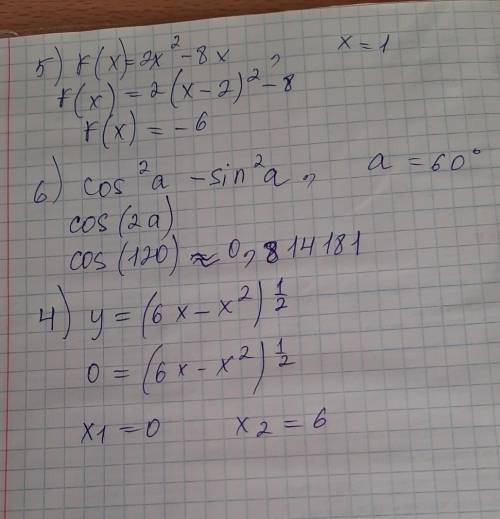 5) f(x)=2x²-8x, x=1
f(x)=2(x-2)²-8
f(x)=-6
6) cos²a-sin²a, a=60°
cos(2a)
cos(120)≈0,814181
4) y=(6x-x²)^1/2
0=(6x-x²)^1/2
x1=0 x2=6